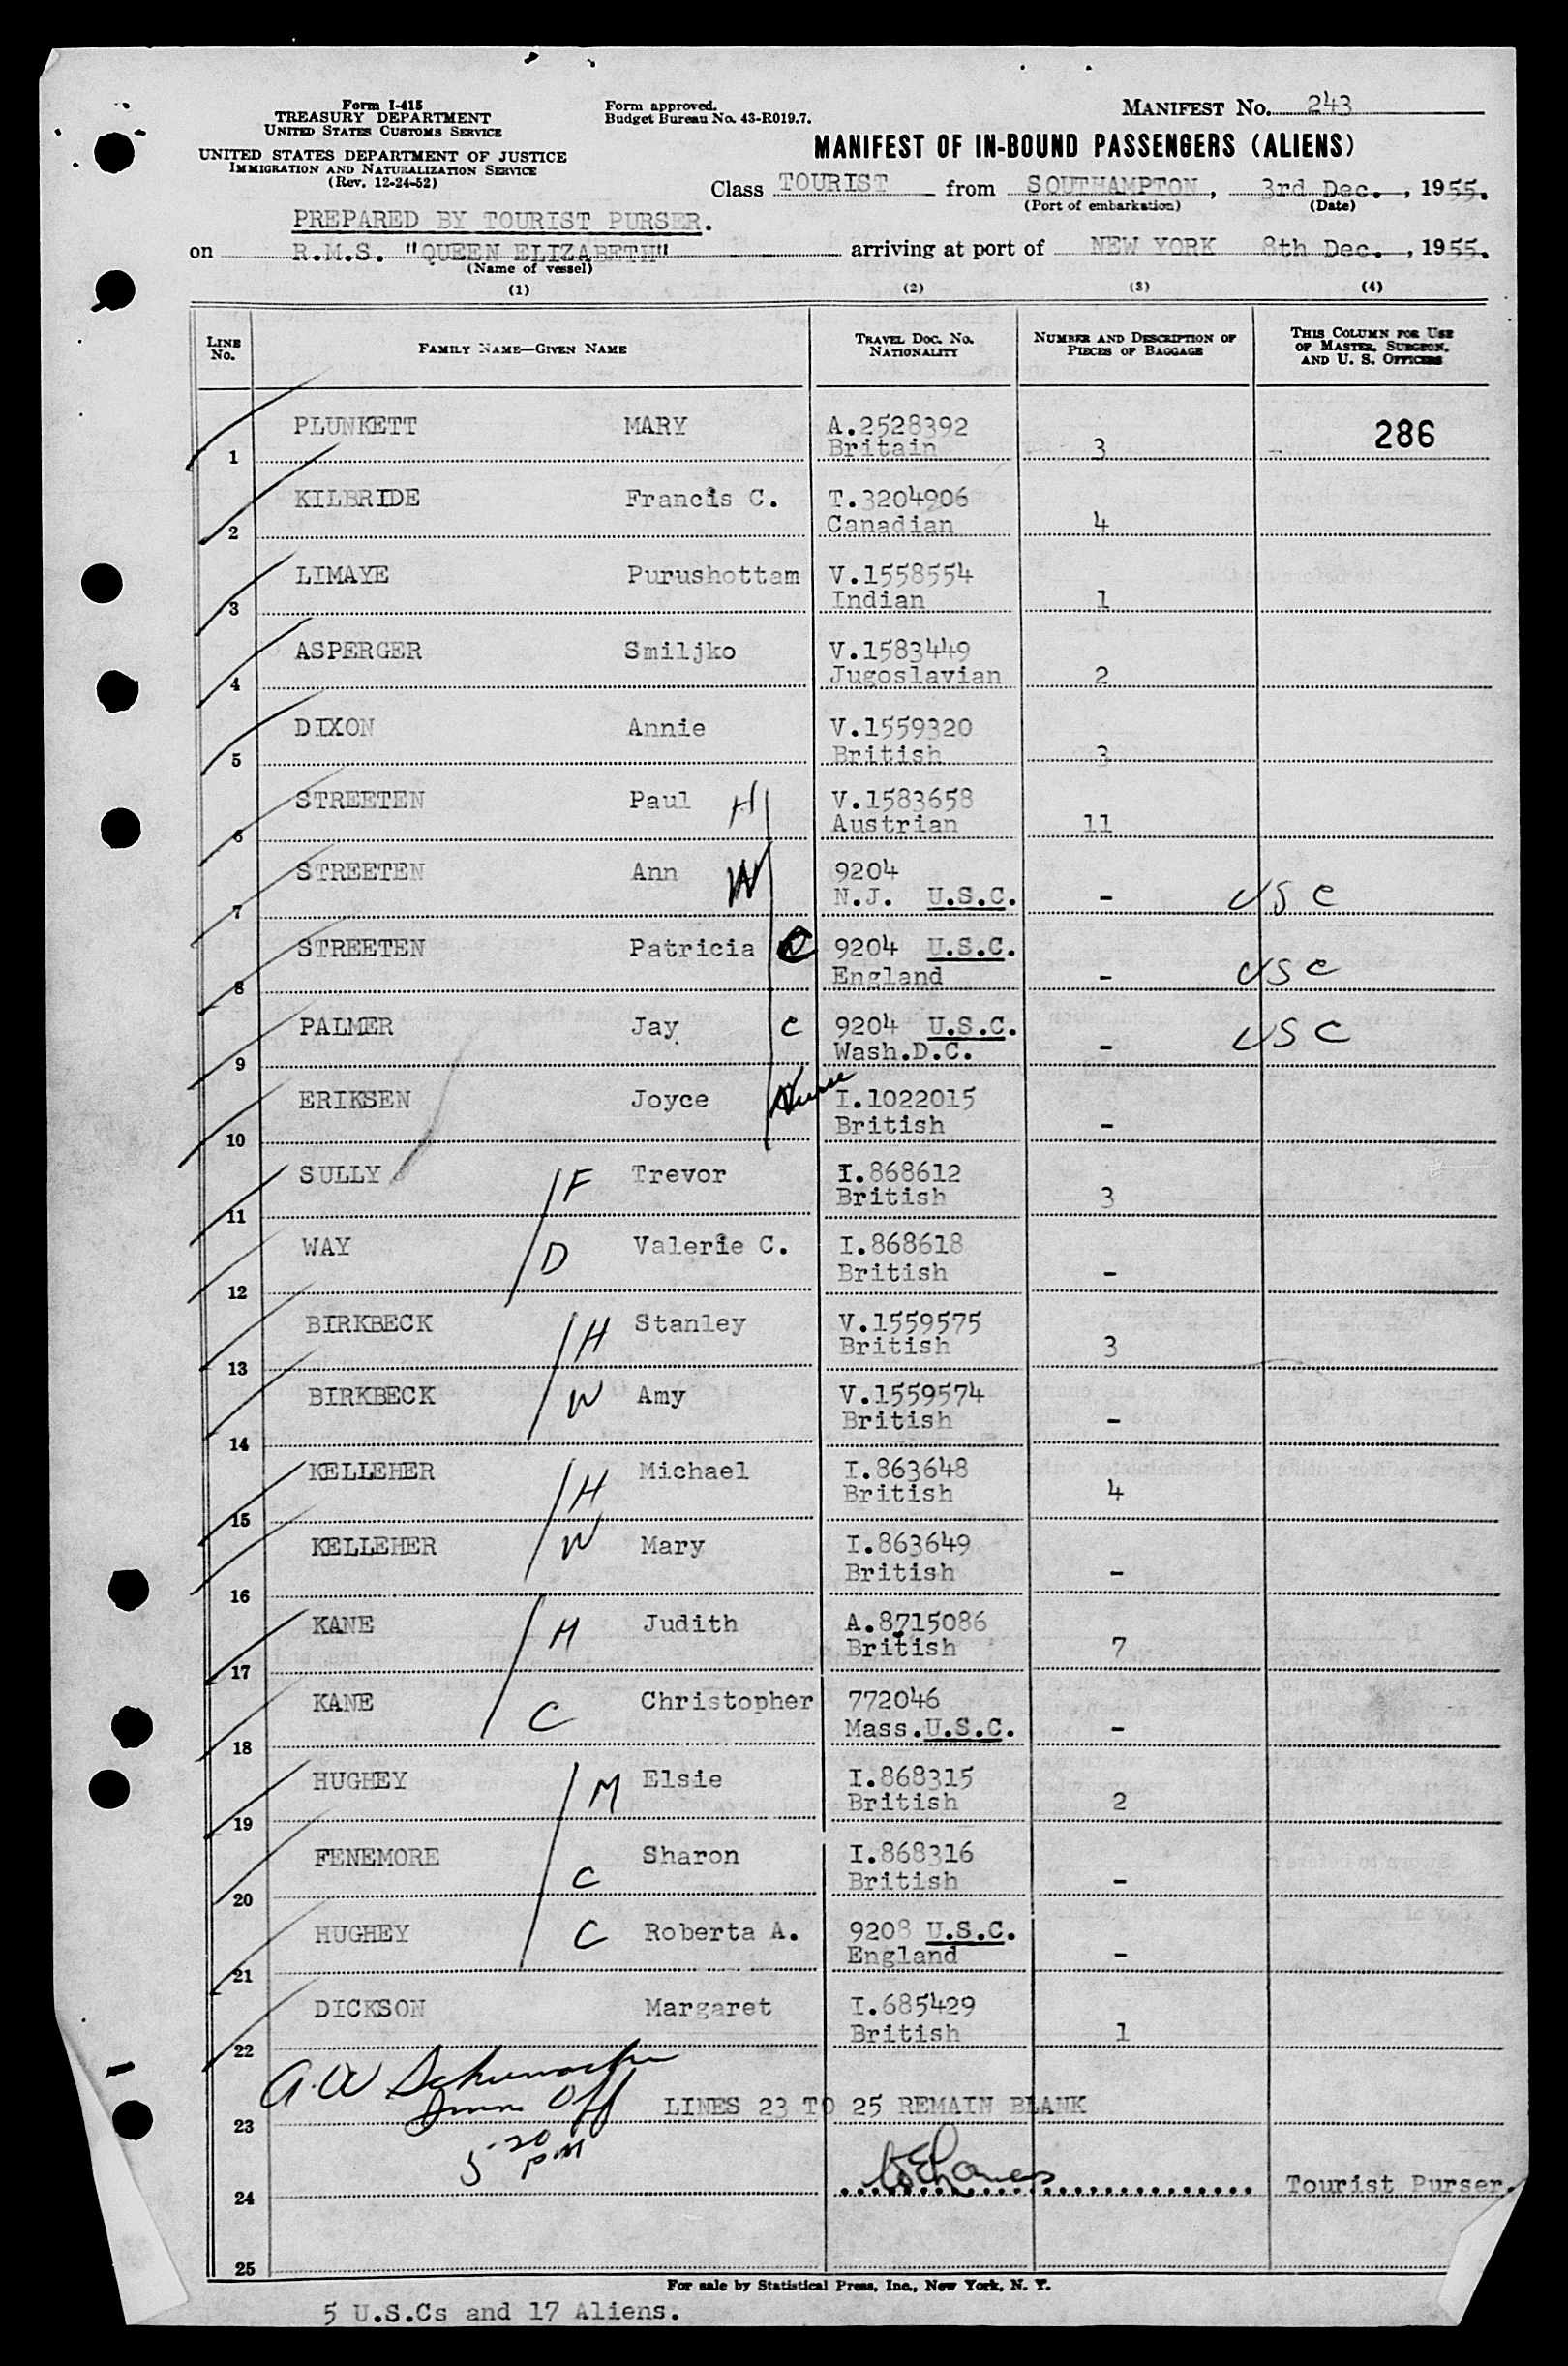 Form I-415
TREASURY DEPARTMENT
UNITED STATES CUSTOMS SERVICE
UNITED STATES DEPARTMENT OF JUSTICE
IMMIGRATION AND NATURALIZATION SERVICE
(Rev. 12-24-52)
Form approved.
Budget Bureau No. 43-R019.7.
MANIFEST No. 243
MANIFEST OF IN-BOUND PASSENGERS (ALIENS)
Class TOURIST from SOUTHAMPTON, 3rd Dec., 1955.
(Port of embarkation) (Date)
PREPARED BY TOURIST PURSER.
on R.M.S. "QUEEN ELIZABETH" arriving at port of NEW YORK 8th Dec., 1955.
(Name of vessel)
(1) (2) (3) (4)
LINE No. FAMILY NAME—GIVEN NAME TRAVEL DOC. NO. NATIONALITY NUMBER AND DESCRIPTION OF PIECES OF BAGGAGE THIS COLUMN FOR USE OF MASTER, SURGEON, AND U. S. OFFICERS
PLUNKETT MARY A.2528392 286
1 Britain 3
KILBRIDE Francis C. T.3204906
2 Canadian 4
LIMAYE Purushottam V.1558554
3 Indian 1
ASPERGER Smiljko V.1583449
4 Jugoslavian 2
DIXON Annie V.1559320
5 British 3
STREETEN Paul H V.1583658
6 Austrian 11
STREETEN Ann W 9204
7 N.J. U.S.C. - USC
STREETEN Patricia C 9204 U.S.C.
8 England - USC
PALMER Jay C 9204 U.S.C.
9 Wash.D.C. - USC
ERIKSEN Joyce Nurse I.1022015
10 British -
SULLY F Trevor I.868612
11 British 3
WAY D Valerie C. I.868618
12 British -
BIRKBECK H Stanley V.1559575
13 British 3
BIRKBECK W Amy V.1559574
14 British -
KELLEHER H Michael I.863648
15 British 4
KELLEHER W Mary I.863649
16 British -
KANE M Judith A.8715086
17 British 7
KANE C Christopher 772046
18 Mass.U.S.C. -
HUGHEY M Elsie I.868315
19 British 2
FENEMORE C Sharon I.868316
20 British -
HUGHEY C Roberta A. 9208 U.S.C.
21 England -
DICKSON Margaret I.685429
22 British 1
A.W Schumacher
Imm Off
23 LINES 23 TO 25 REMAIN BLANK
5-20 PM
24 Tourist Purser.
25
For sale by Statistical Press, Inc., New York, N. Y.
5 U.S.Cs and 17 Aliens.